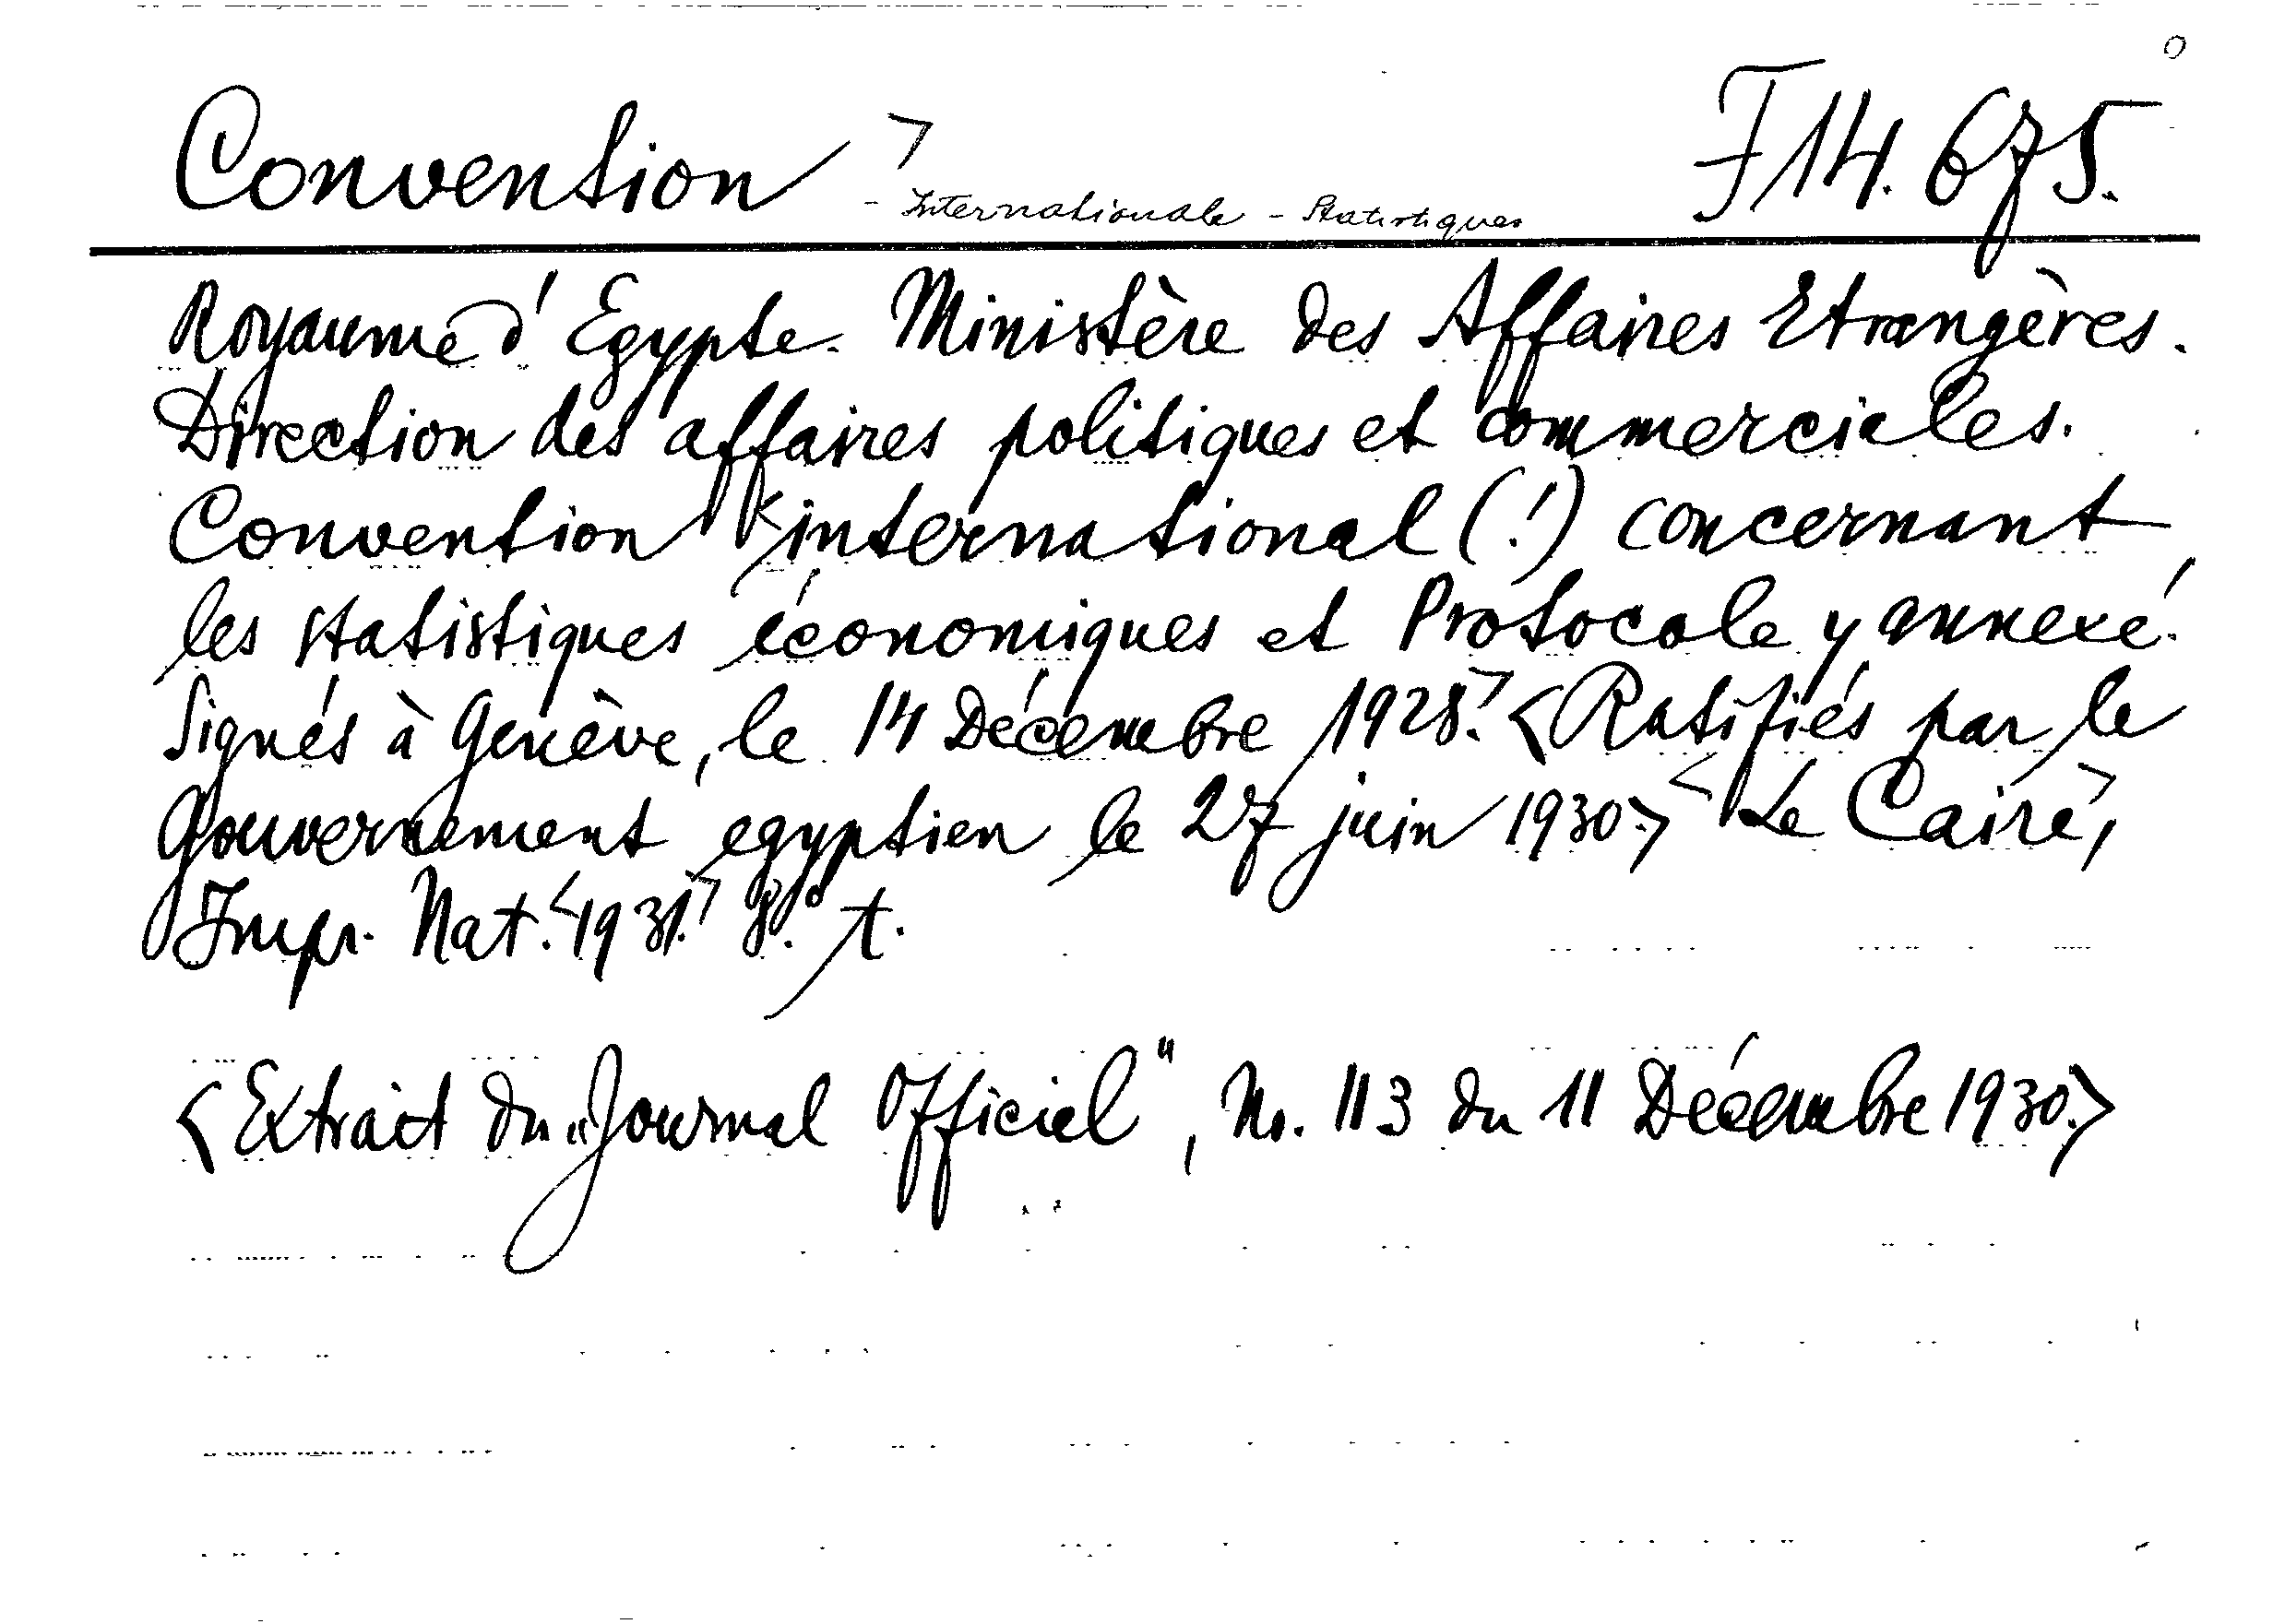 Convention > - Internationale - Statistiques F 14.675.
Royaume d'Egypte. Ministère des Affaires Etrangères.
Direction des affaires politiques et commerciales.
Convention < international (!) concernant
les statistiques économiques et Protocole y annexé.
Signés à Genève, le 14 Décembre 1928.> <Ratifiés par le
Gouvernement egyptien le 27 juin 1930.> <Le Caire>,
Impr. Nat. <1931.> 8°. t.
<Extrait du „Journal Officiel", No. 113 du 11 Décembre 1930.>